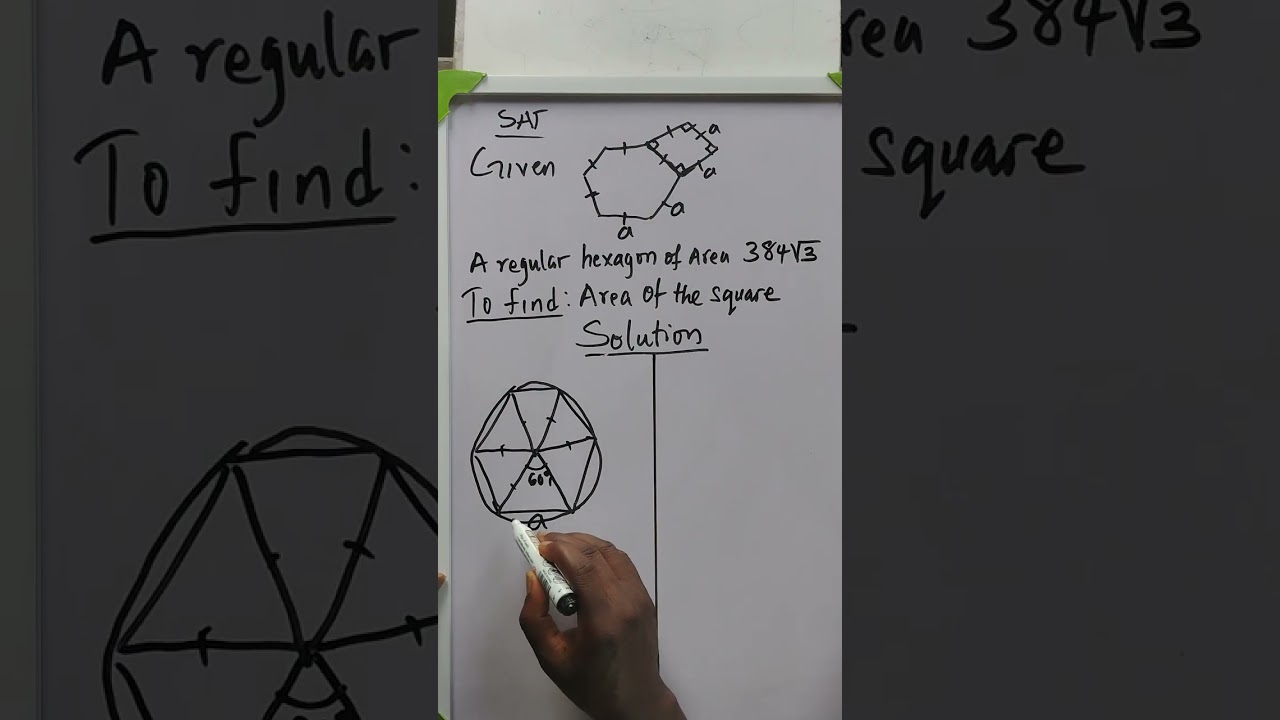 SAT
Given
a
a
a
a
A regular hexagon of Area 384√3
To find: Area of the square
Solution
60°
a
A regular
rea 384√3
To find:
square